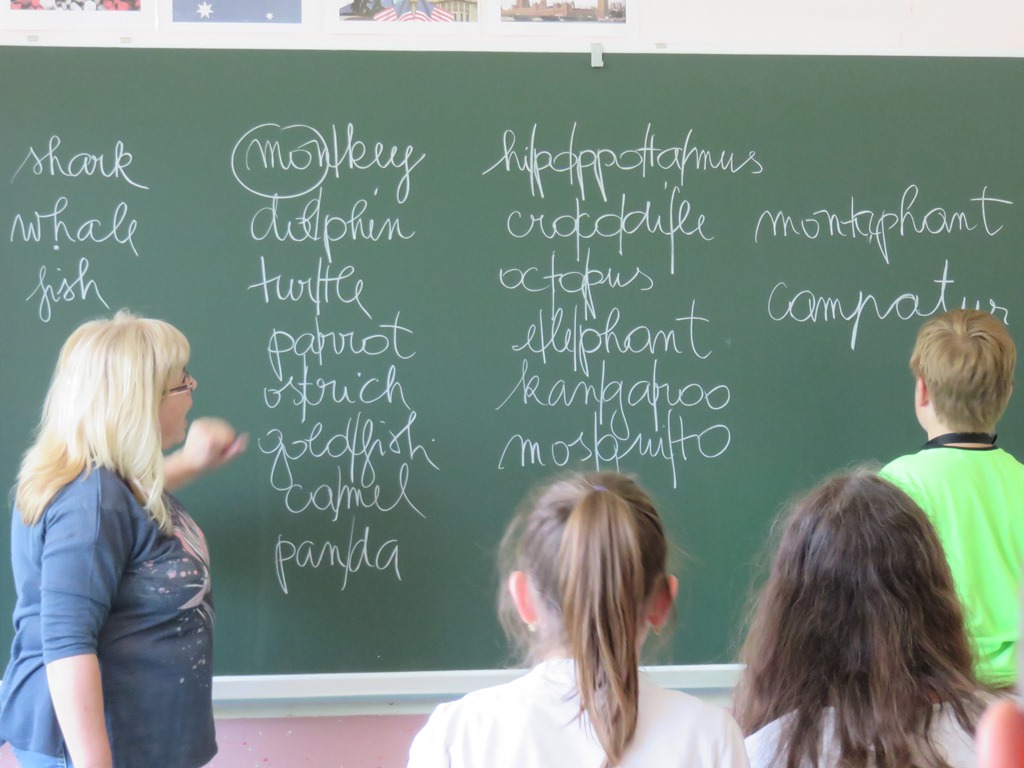 shark
whale
fish
monkey
dolphin
turtle
parrot
ostrich
goldfish
camel
panda
hippopotamus
crocodile
octopus
elephant
kangaroo
mosquito
campatur